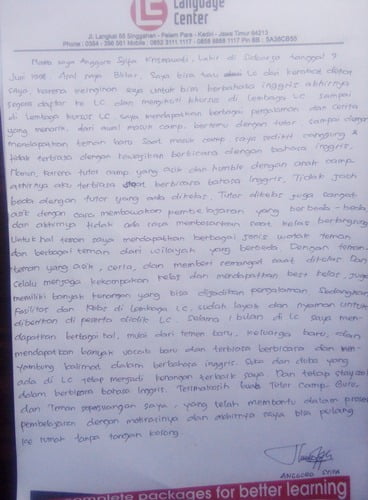 Language
Center
Jl. Langkat 55 Singgahan - Pelem Pare - Kediri - Jawa Timur 64213
Phone : 0354 - 396 561 Mobile : 0852 3111 1117 - 0856 8868 1117 Pin BB : 5A36CB55
Nama saya Anggoro Syifa Lahir di Sidoarjo tanggal 9
Juni 1998. Asal saya Blitar. Saya bisa tau LC dari
saya. karena keinginan saya untuk bisa berbahasa inggris akhirnya
segera daftar ke LC dan mengikuti khursus di Lembaga LC. Sampai
di Lembaga kursus LC, saya mendapatkan berbagai pengalaman dan cerita
yang menarik, dari awal masuk camp, bertemu dengan tutor camp dan
mendapatkan teman baru. Saat masuk camp saya sedikit canggung &
tidak terbiasa dengan kewajiban berbicara dengan bahasa inggris.
Namun, karena tutor camp yang asik dan humble dengan anak camp
akhirnya aku terbiasa berbicara bahasa inggris. Tidak jauh
beda dengan tutor yang ada dikelas. Tutor dikelas juga sangat
asik dengan cara membawakan pembelajaran yang berbeda-beda,
dan akhirnya tidak ada rasa membosankan saat kelas berlangsung
Untuk hal teman saya mendapatkan berbagai jenis watak teman
dan berbagai teman dari wilayah yang berbeda. Dengan teman-
teman yang asik, ceria, dan memberi semangat saat dikelas Dan
selalu menjaga kekompakan kelas dan mendapatkan best kelas, juga
memiliki banyak kenangan yang bisa dijadikan pengalaman. Sedangkan
Fasilitas dan kelas di Lembaga LC, sudah layak dan nyaman untuk
diberikan di peserta didik LC. Selama 1 bulan di LC saya men-
dapatkan berbagai hal, mulai dari temen baru, keluarga baru,
mendapatkan banyak vocab baru dan terbiasa berbicara dan men-
yambung kalimat dalam berbahasa inggris. Suka dan duka yang
ada di LC tetap menjadi kenangan terbaik saya. Dan tetap
dalam berbicara bahasa inggris. Terimakasih buat Tutor Camp, Guru,
dan Teman seperjuangan saya, yang telah membantu dalam proses
pembelajaran dengan motivasinya dan akhirnya saya bisa pulang
ke rumah tanpa tangan kosong.
ANGGORO SYIFA
complete packages for better learning